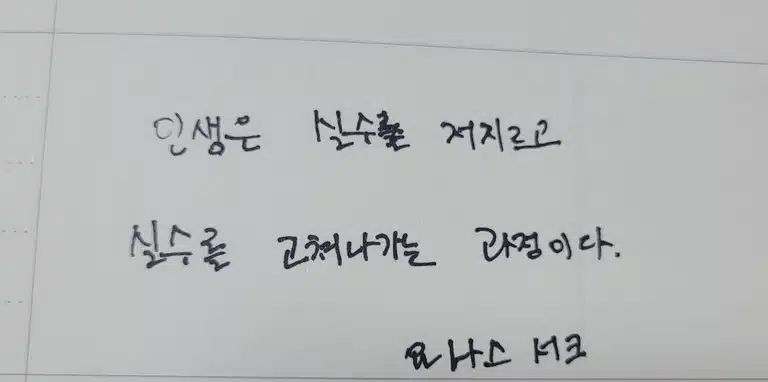 인생은 실수를 저지르고
실수를 고쳐나가는 과정이다.
요나스 서크